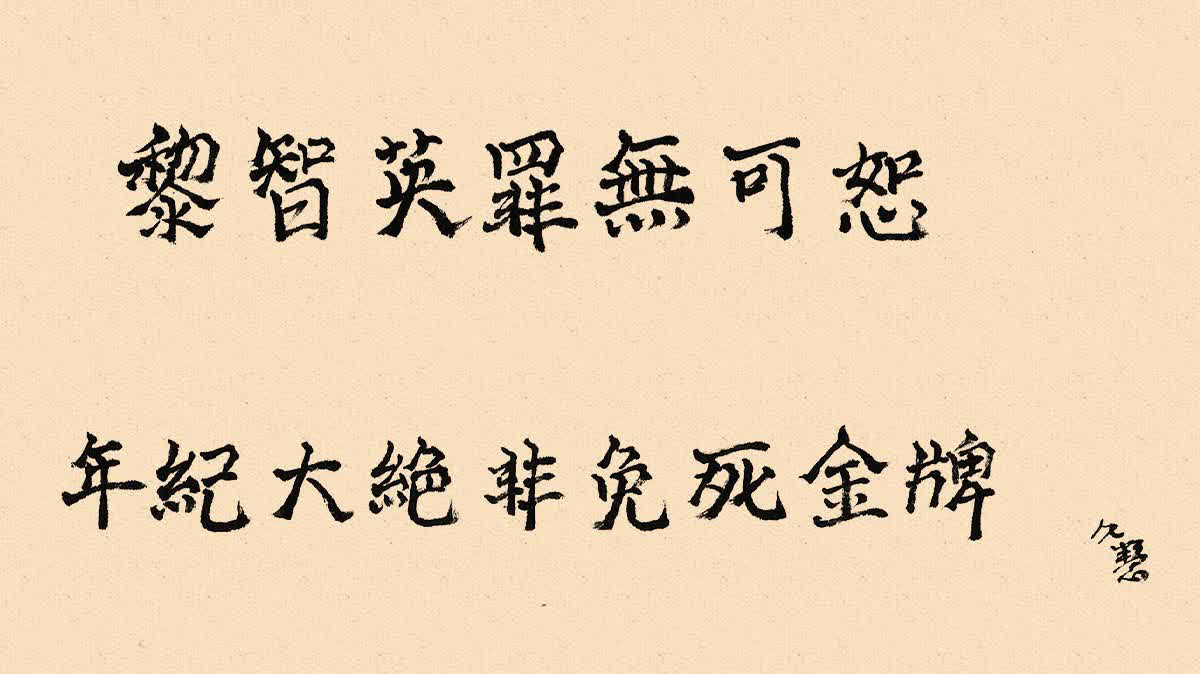 黎智英罪無可恕
年紀大絕非免死金牌
久慧